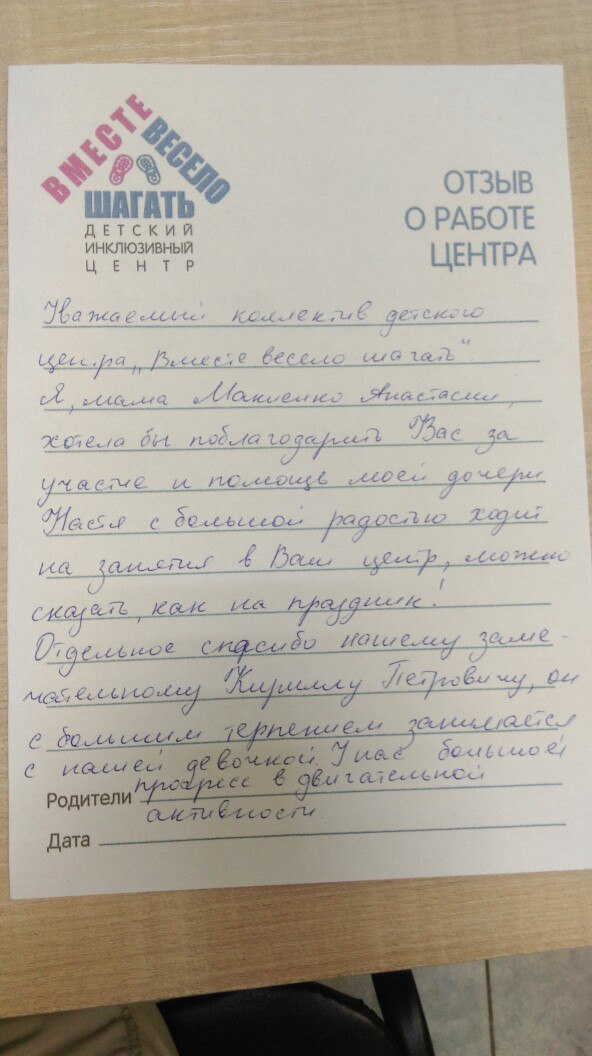 ВМЕСТЕ
ВЕСЕЛО
ШАГАТЬ
ДЕТСКИЙ
ИНКЛЮЗИВНЫЙ
ЦЕНТР
ОТЗЫВ
О РАБОТЕ
ЦЕНТРА
Уважаемый коллектив детского
центра „Вместе весело шагать".
Я, мама Маклейко Анастасии,
хотела бы поблагодарить Вас за
участие и помощь моей дочери
Настя с большой радостью ходит
на занятия в Ваш центр, можно
сказать, как на праздник!
Отдельное спасибо нашему заме-
чательному Кириллу Петровичу, он
с большим терпением занимается
с нашей девочкой. У нас большой
Родители прогресс в двигательной
активности.
Дата